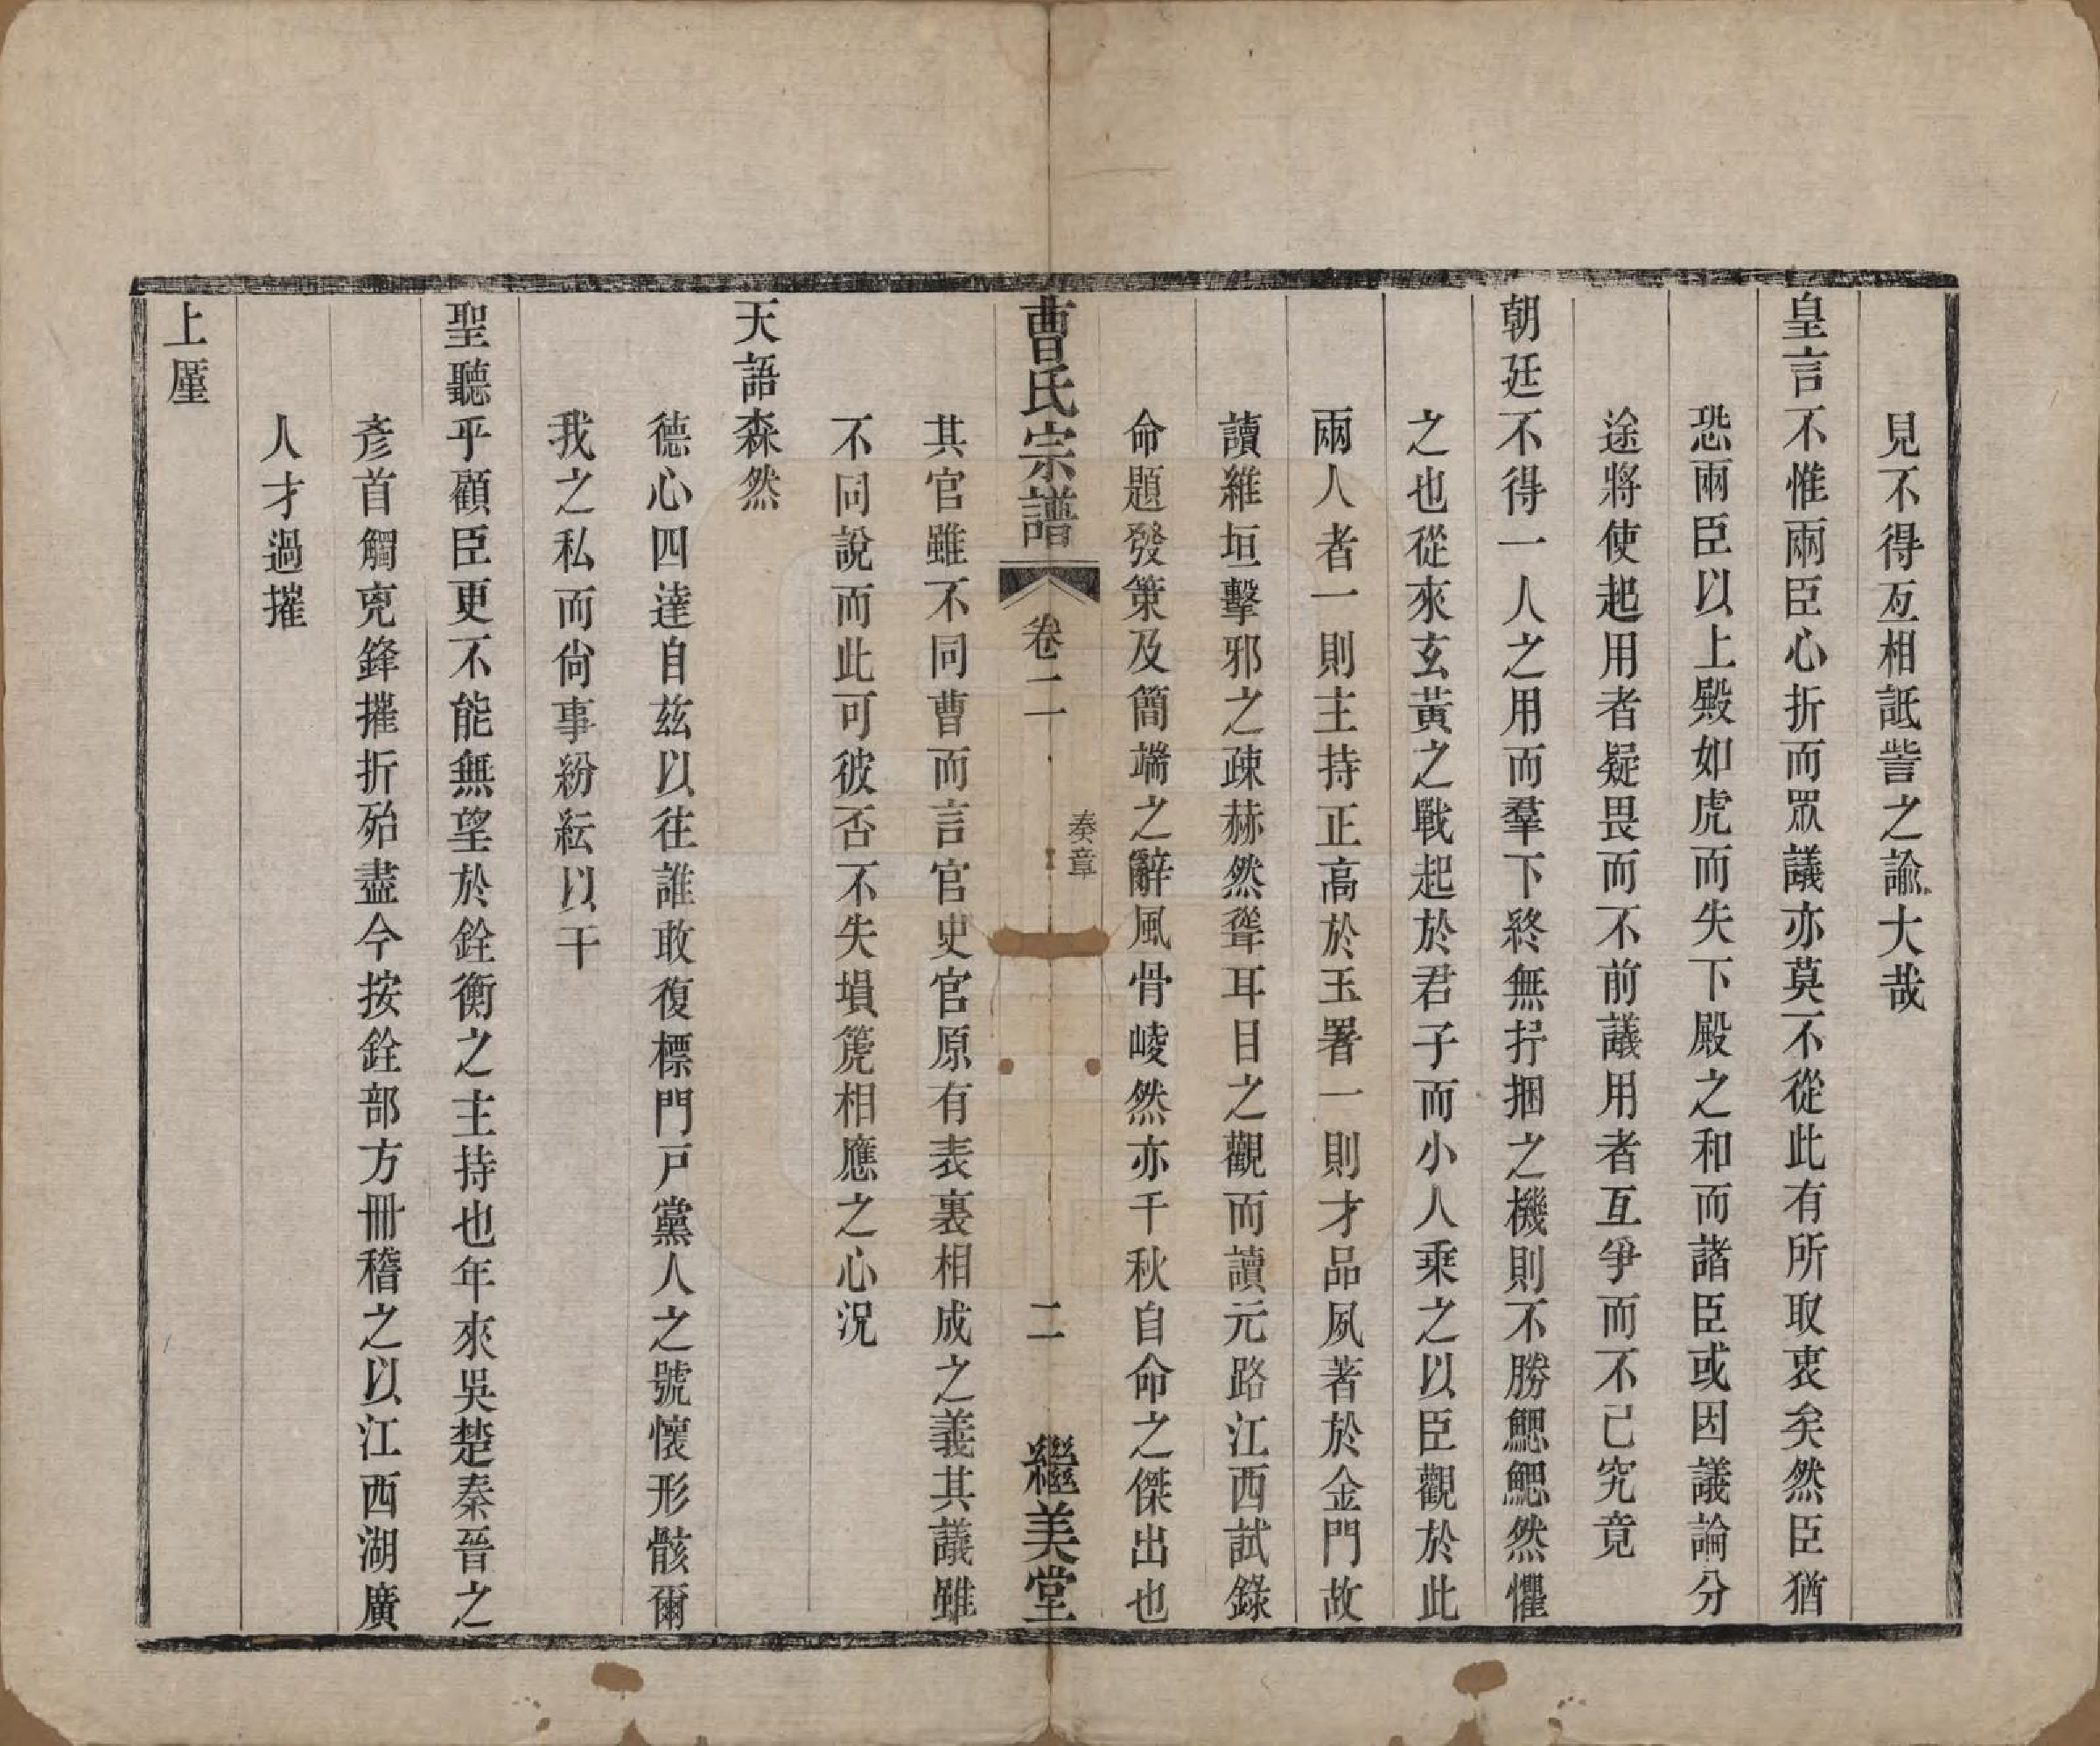 見不得互相詆訾之諭大哉
皇言不惟兩臣心折而眾議亦莫不從此有所取衷矣然臣猶
恐兩臣以上殿如虎而失下殿之和而諸臣或因議論分
途將使起用者疑畏而不前議用者互爭而不已究竟
朝廷不得一人之用而羣下終無扞捆之機則不勝鰓鰓然懼
之也從來玄黃之戰起於君子而小人乘之以臣觀於此
兩人者一則主持正高於玉署一則才品夙著於金門故
讀維垣擊邪之疎赫然聳耳目之觀而讀元路江西試錄
命題發策及簡端之辭風骨崚然亦千秋自命之傑出也
曹氏宗譜
卷二
奏章
二
繼美堂
其官雖不同曹而言官史官原有表裏相成之義其議雖
不同說而此可彼否不失塤篪相應之心況
天語森然
德心四達自玆以往誰敢復標門戸黨人之號懷形骸爾
我之私而尙事紛紜以干
聖聽乎顧臣更不能無望於銓衡之主持也年來吳楚秦晉之
彥首觸兇鋒摧折殆盡今按銓部方冊稽之以江西湖廣
人才過摧
上厪